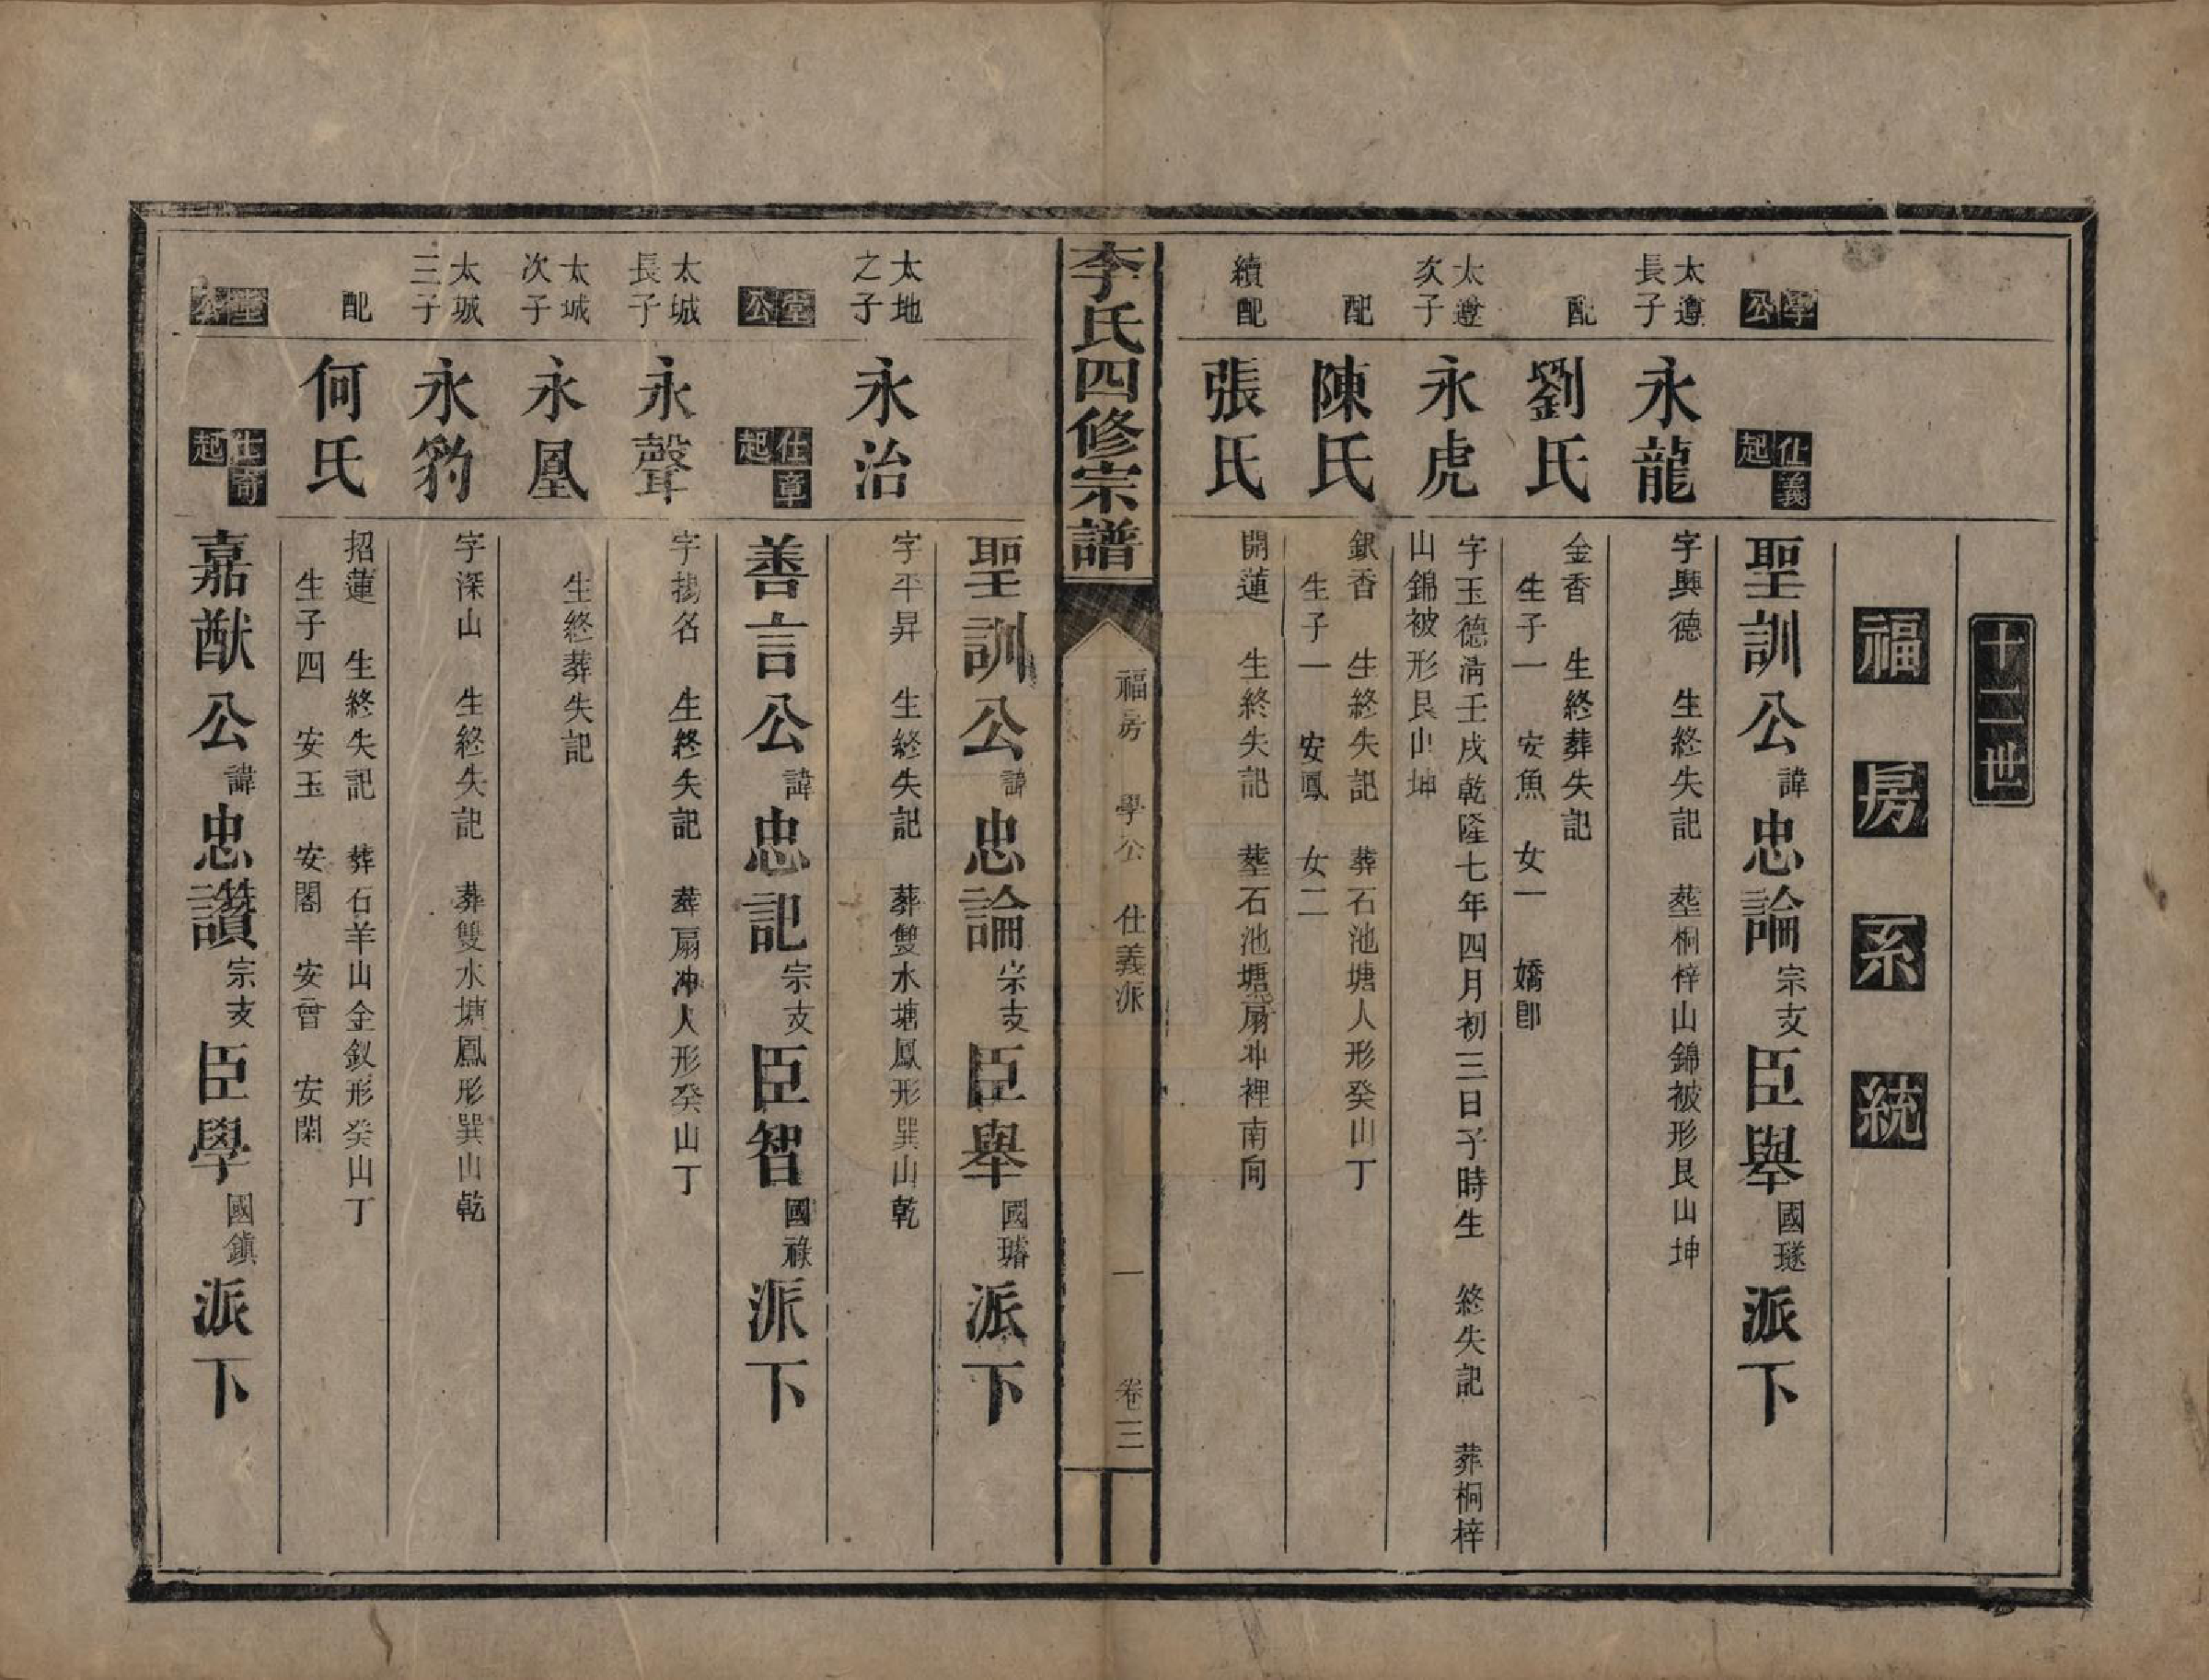 十二世
福房系統
學公
仕義起
聖訓公諱忠論宗支臣舉國璲派下
太遵長子
永龍
字興德 生終失記 塟桐梓山錦被形艮山坤
配
劉氏
金香 生終葬失記
生子一 安魚 女一 嬌卽
太遵次子
永虎
字玉德淸壬戌乾隆七年四月初三日子時生 終失記 葬桐梓
山錦被形艮山坤
配
陳氏
銀香 生終失記 葬石池塘人形癸山丁
生子一 安鳳 女二
續配
張氏
開蓮 生終失記 塟石池塘扇冲裡南向
李氏四修宗譜
福房 學公 仕義派 一 卷三
聖訓公諱忠論宗支臣舉國璿派下
太地之子
永治
字平昇 生終失記 葬雙水塘鳳形巽山乾
堂公
仕章起
善言公諱忠記宗支臣智國祿派下
太城長子
永聲
字揚名 生終失記 葬扇冲人形癸山丁
太城次子
永凰
生終葬失記
太城三子
永豹
字深山 生終失記 葬雙水塘鳳形巽山乾
配
何氏
招蓮 生終失記 葬石羊山金釵形癸山丁
生子四 安玉 安閣 安曾 安閑
堂公
仕奇起
嘉猷公諱忠讚宗支臣學國鎮派下